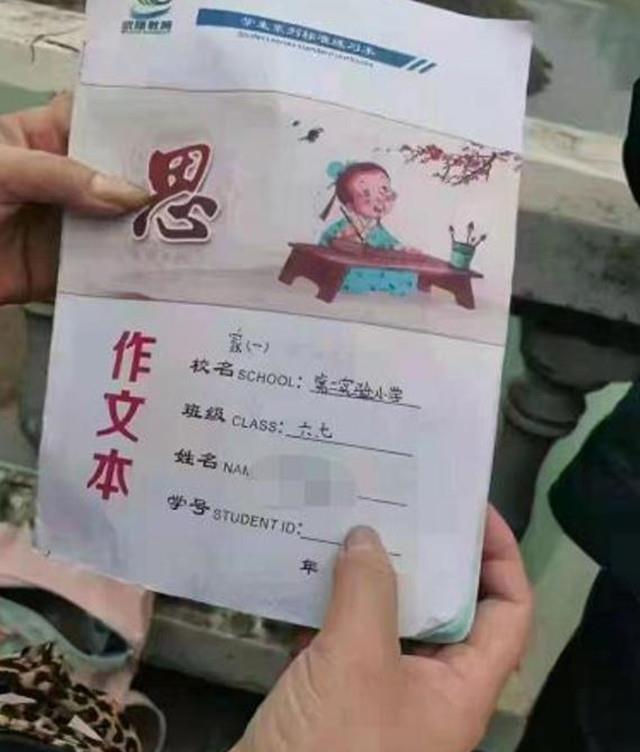 学生系列标准练习本
思
作文本
家(一)
校名SCHOOL: 第一实验小学
班级 CLASS: 六七
姓名 NAM
学号 STUDENT ID:
年